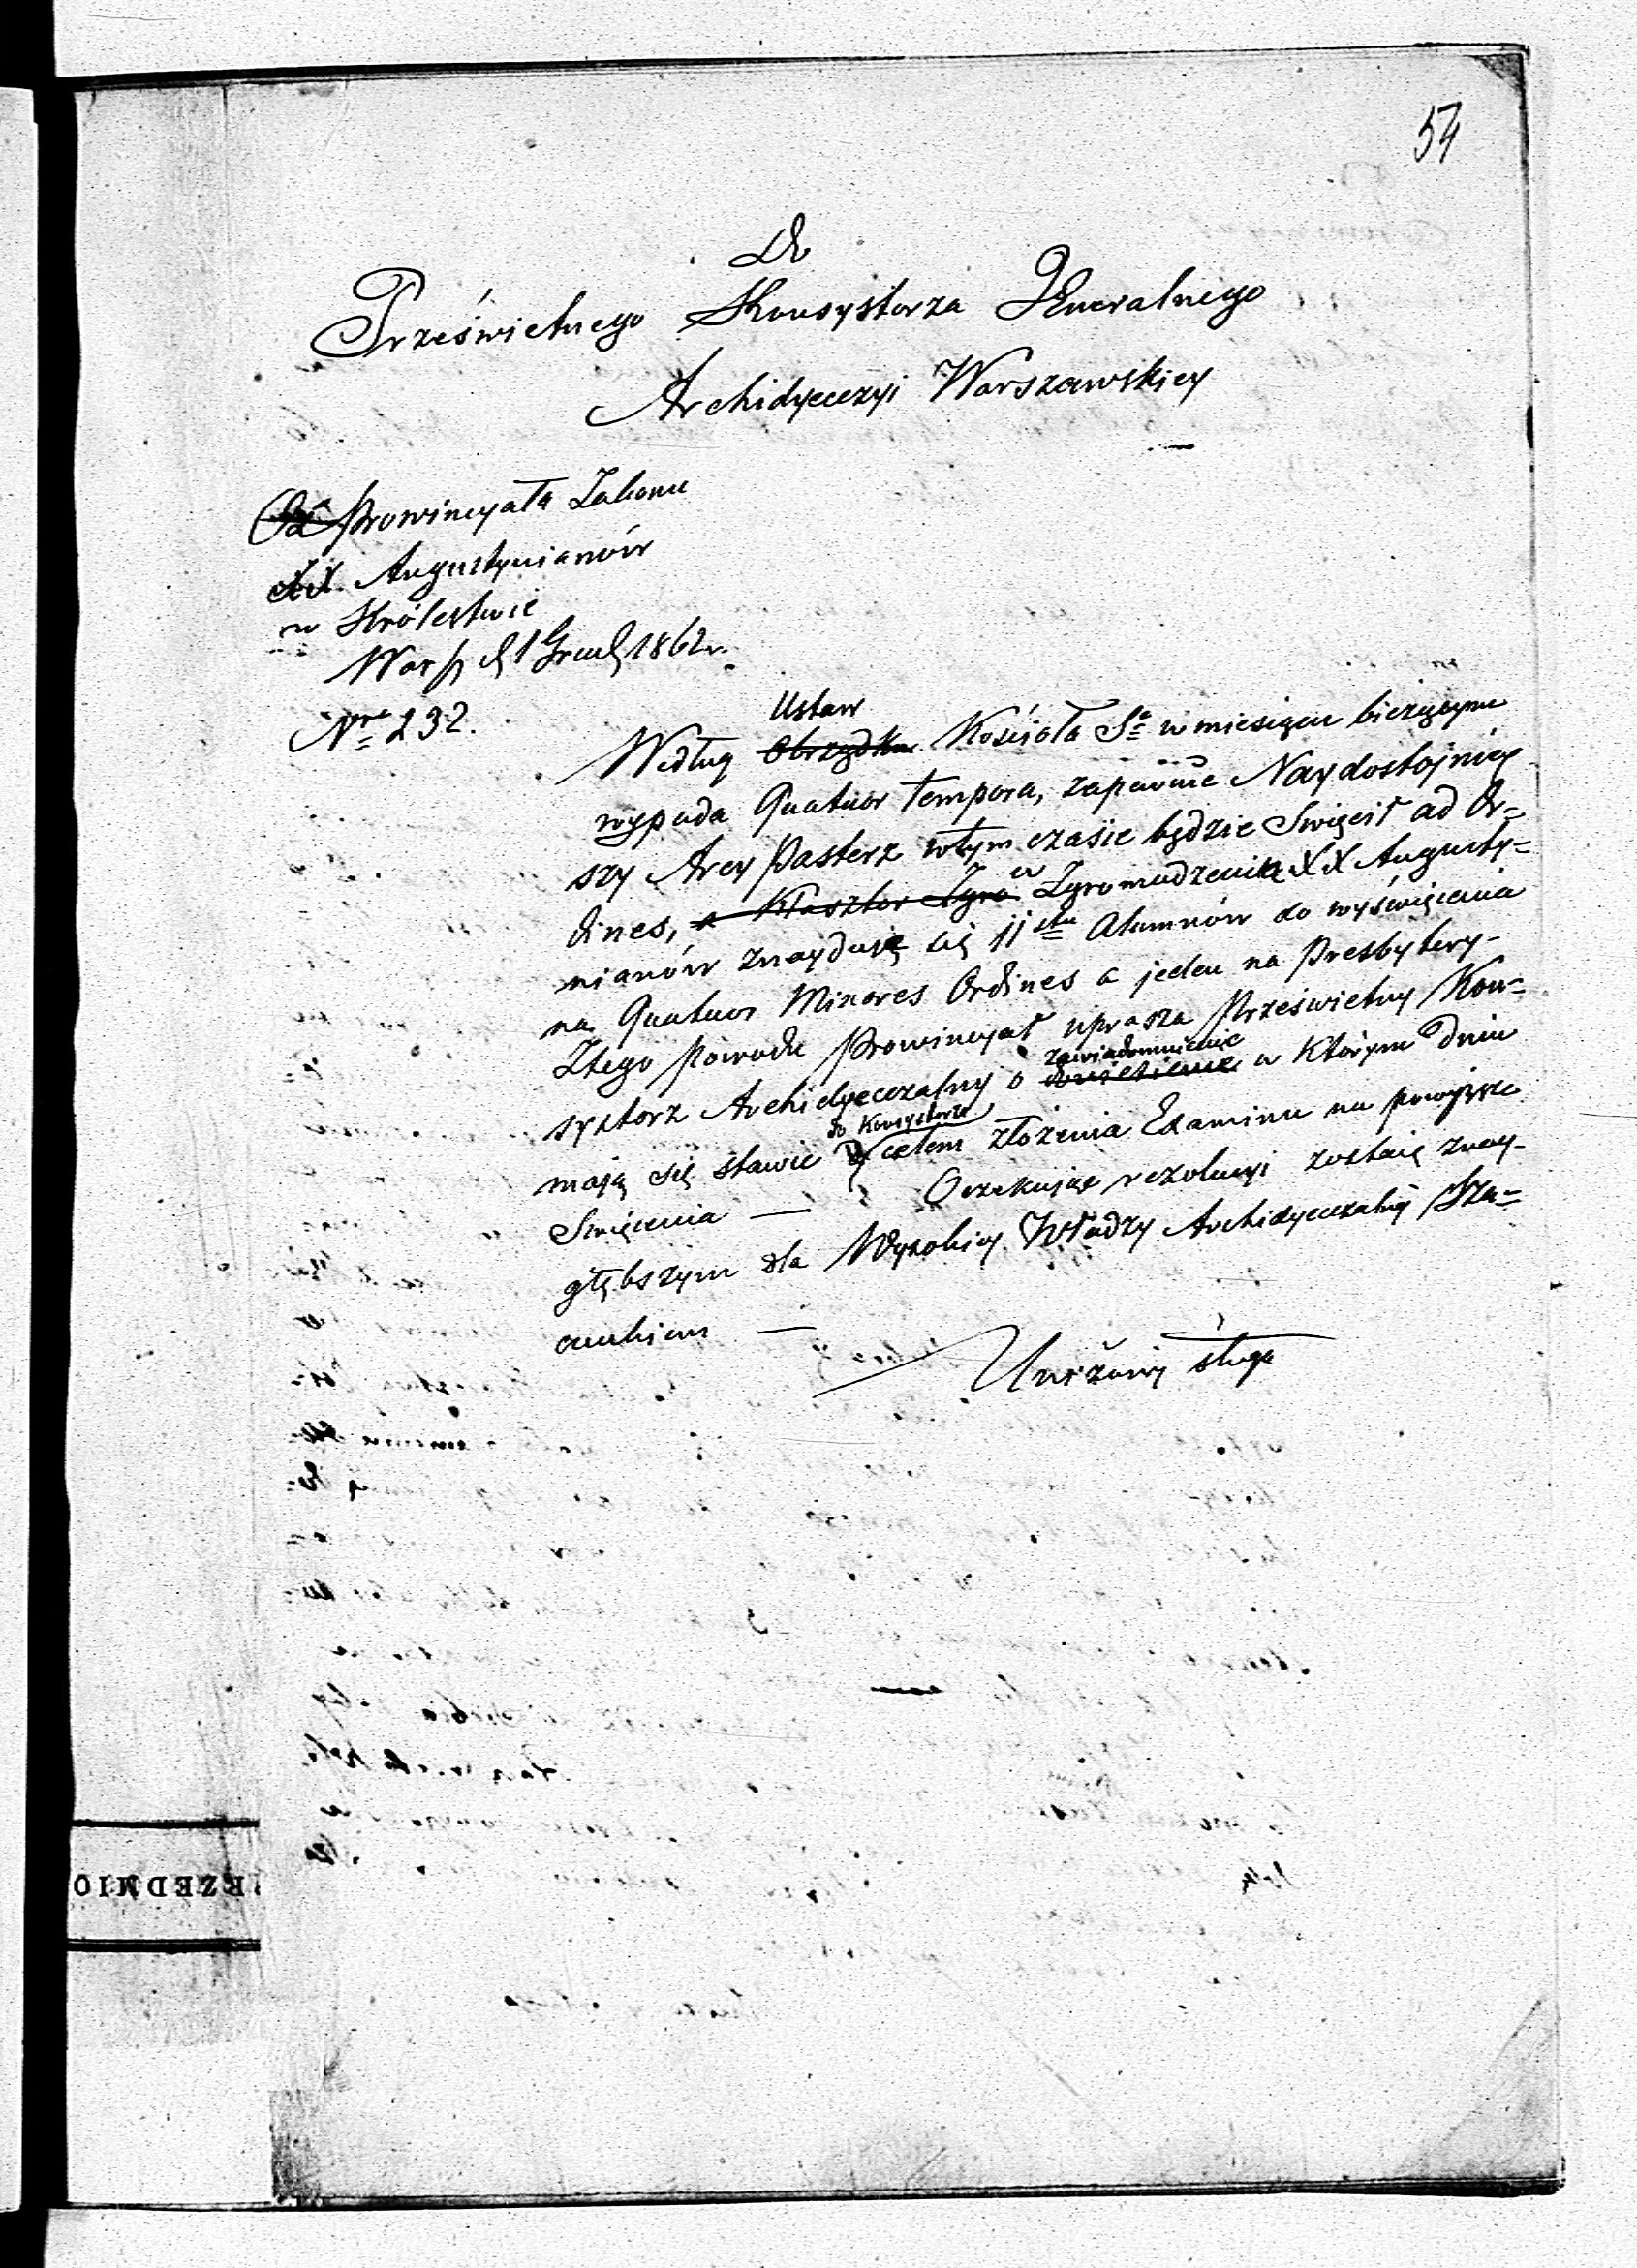 54
Do
Prześwietnego Konsystorza Jeneralnego
Archidyecezyi Warszawskiey
Od Prowincyała Zakonu
XX. Augustynianów
w Królestwie
Warsz d 1 Grud 1862 r.
Nro 232.
Ustaw
Według Obrządku Kościoła Sgo w miesiącu bieżącym
wypada Quatuor tempora, zapewne Naydostojniey
szy Arcy Pasterz wtym czasie będzie Swięcił ad Or=
dines, a Klasztor Zgro w Zgromadzeniu XX Augusty=
nianów znayduje się 11stu Alumnów do wyświęcenia
na Quatuor Minores Ordines a jeden na Presbytery-
Ztego powodu Prowincyał uprasza Prześwietny Kon=
zawiadomnienie
systorz Archidyecezalny o w którym Dniu
do Konsystorza
mają się stawić celem złożenia Examinu na powyższe
Swięcenia — Oczekując rezolucyi zostaię znay-
głębszym dla Wysokiey Władzy Archidyecezalnéj Sza=
cunkiem —
Uniżony sługa
RZEDMIO